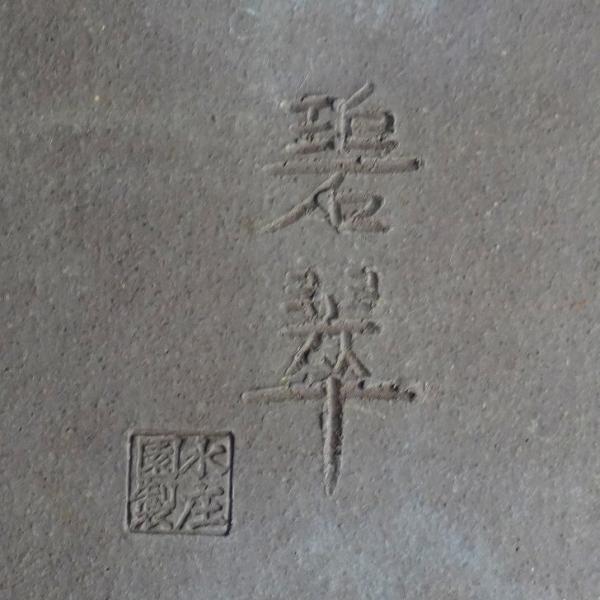 碧翠
水庄園製